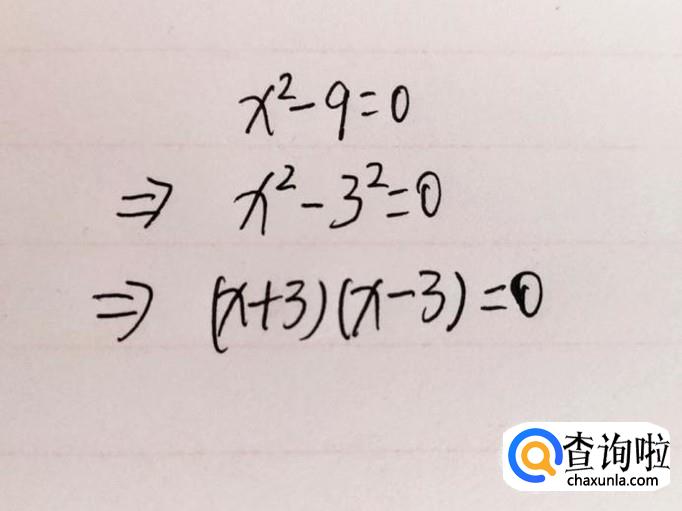 x²-9=0
⇒ x²-3²=0
⇒ (x+3)(x-3)=0
查询啦
chaxunla.com